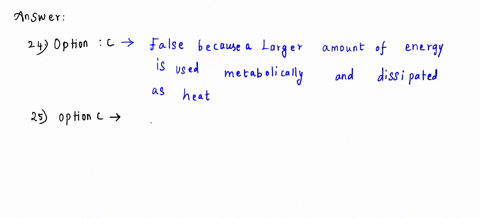 Answer:
24) Option : C → False because a Larger amount of energy
is used metabolically and dissipated
as heat
25) option C →